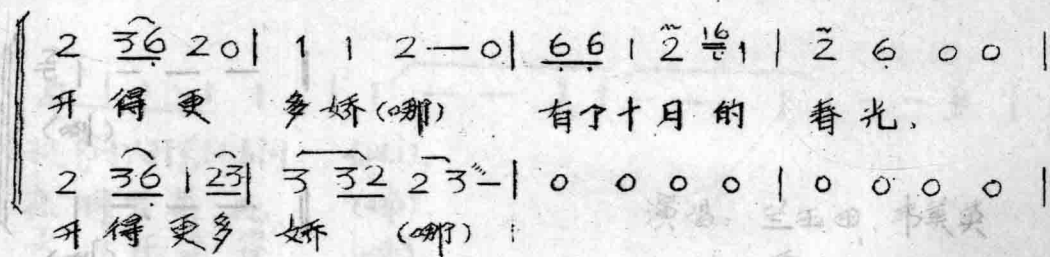 2 36 2 0 | 1 1 2 — 0 | 6 6 1 2 16 1 | 2 6 0 0 |
开 得 更 多 娇 (哪) 有了十月 的 春 光,
2 36 1 23 | 3 32 2 3 — | 0 0 0 0 | 0 0 0 0 |
开 得 更多 娇 (哪)